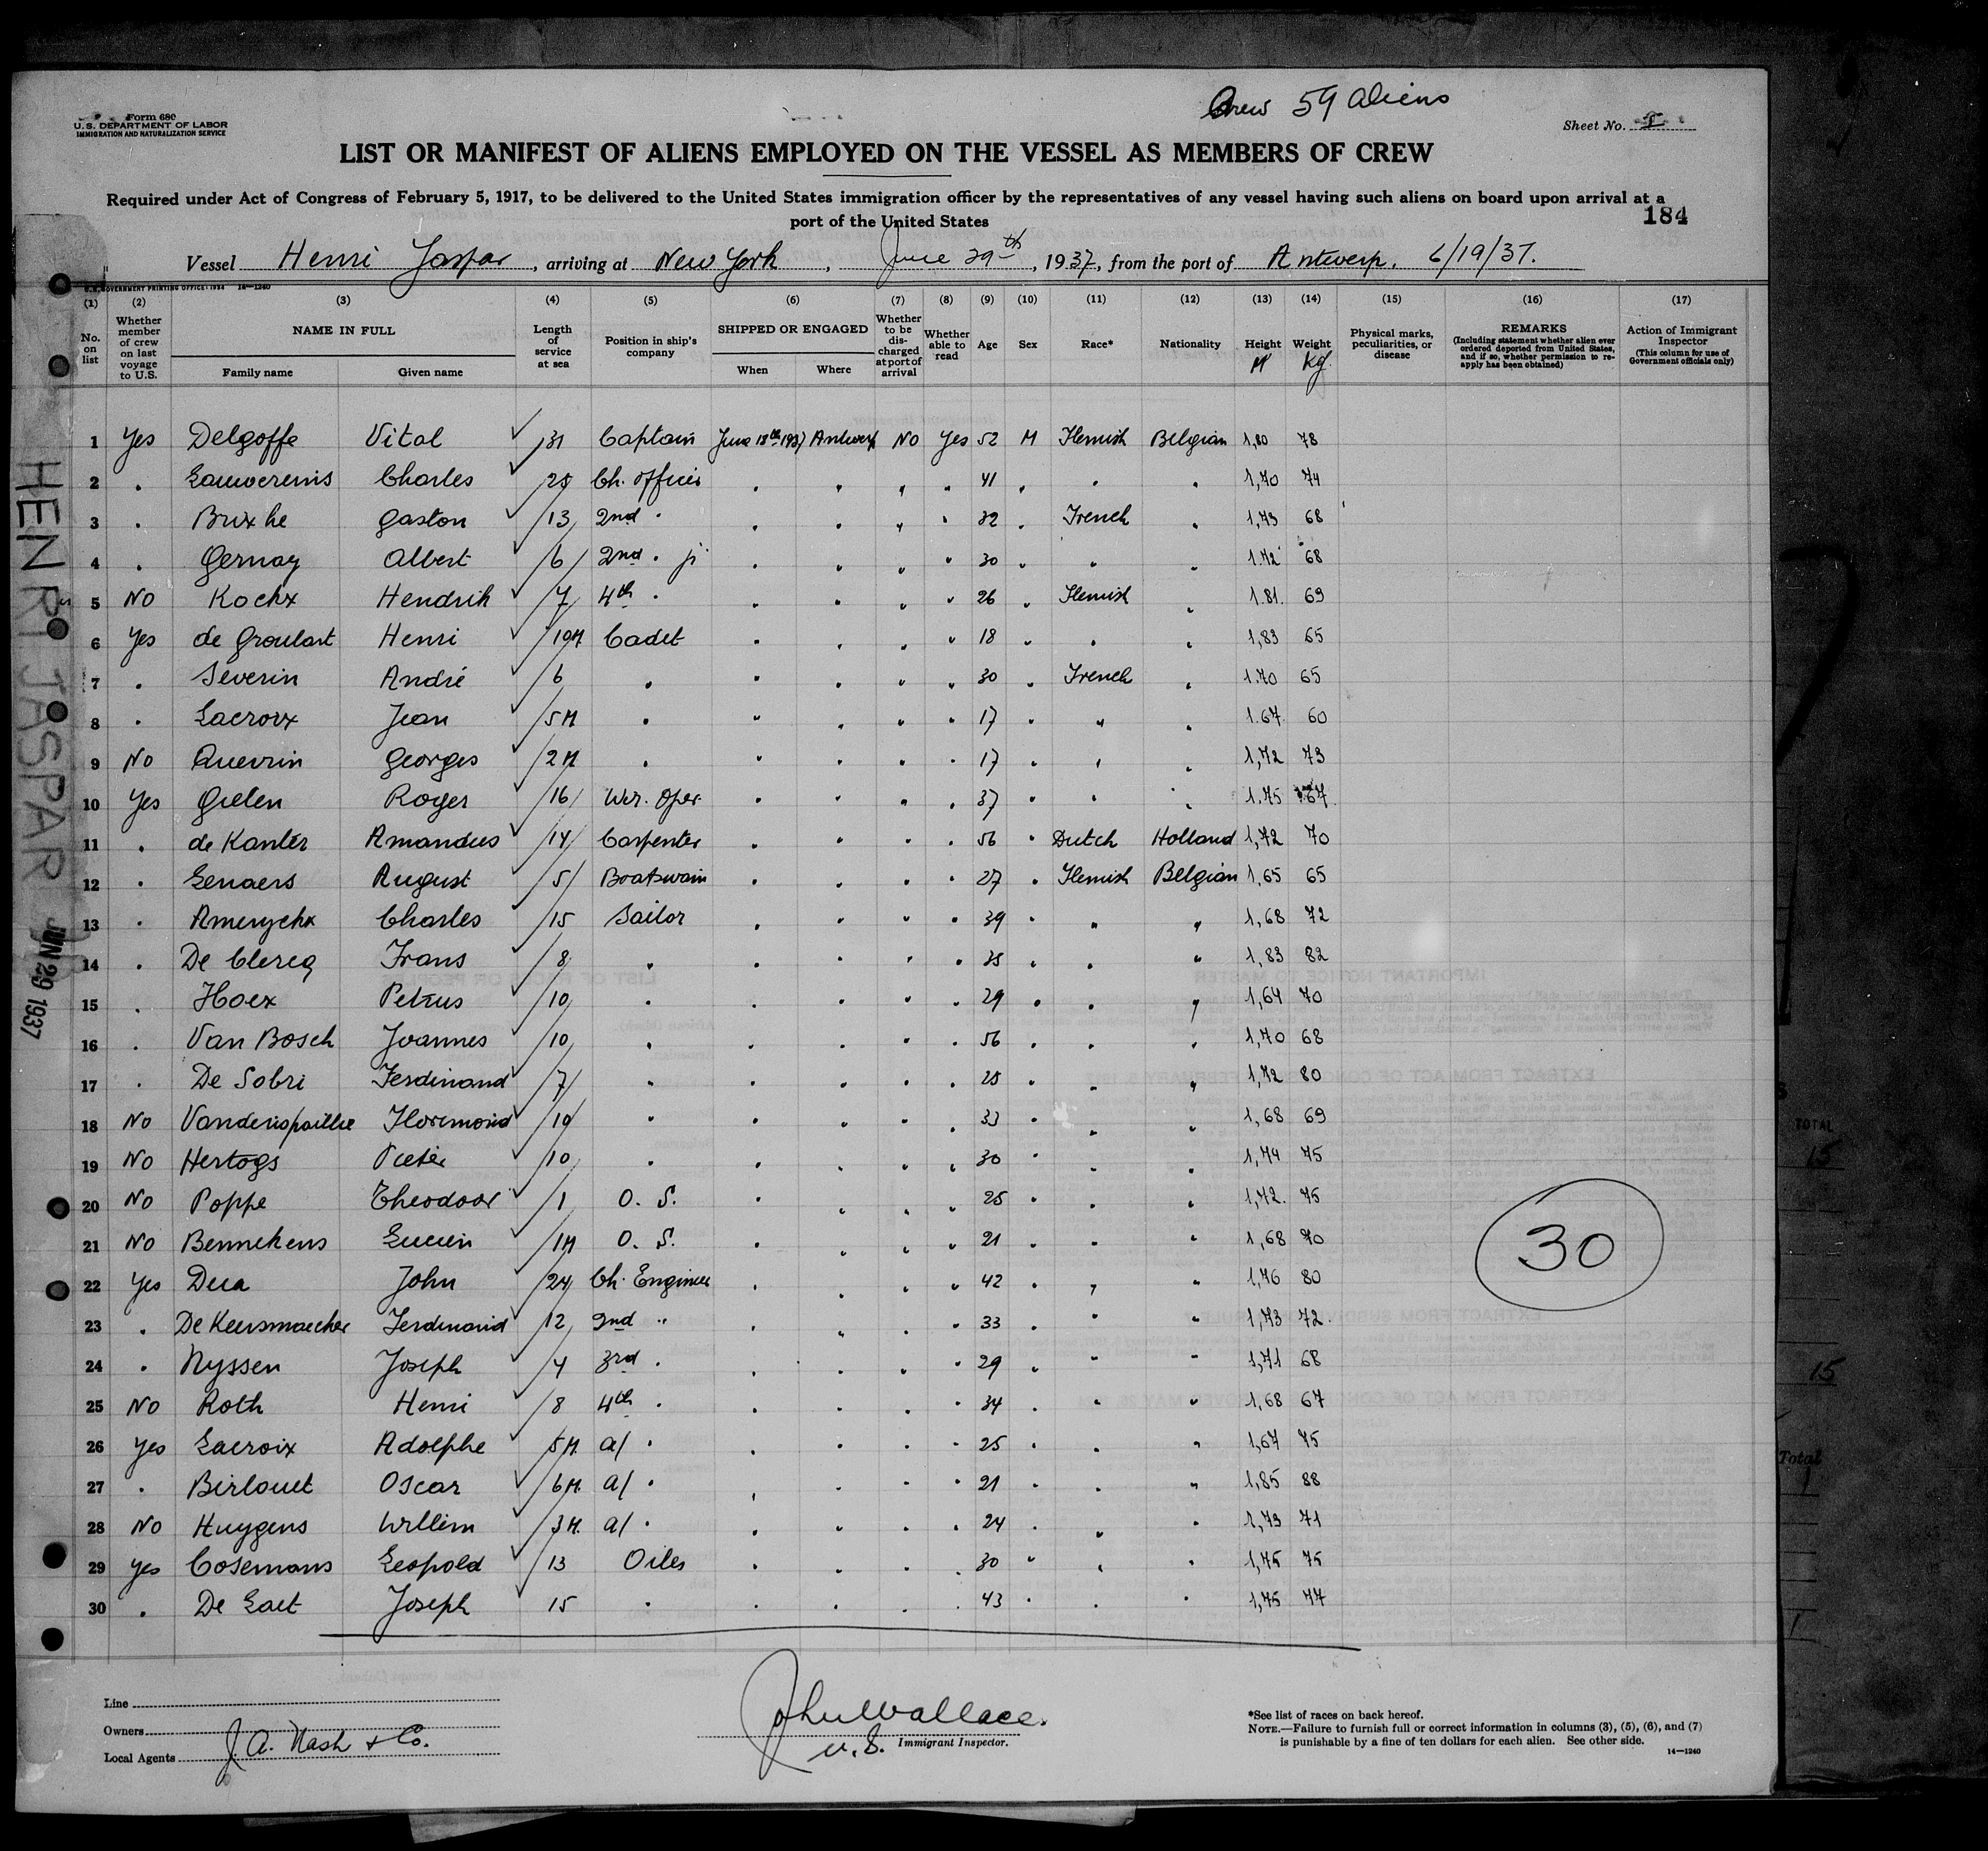 Crew 59 Aliens
Form 680
U.S. DEPARTMENT OF LABOR
IMMIGRATION AND NATURALIZATION SERVICE
Sheet No.
LIST OR MANIFEST OF ALIENS EMPLOYED ON THE VESSEL AS MEMBERS OF CREW
Required under Act of Congress of February 5, 1917, to be delivered to the United States immigration officer by the representatives of any vessel having such aliens on board upon arrival at a
port of the United States
184
Vessel Henri Jaspar, arriving at New York, June 29th, 1937, from the port of Antwerp. 6/19/37.
U.S. GOVERNMENT PRINTING OFFICE: 1934 14—1240
(1) (2) (3) (4) (5) (6) (7) (8) (9) (10) (11) (12) (13) (14) (15) (16) (17)
No. on list
Whether member of crew on last voyage to U.S.
NAME IN FULL
Family name Given name
Length of service at sea
Position in ship's company
SHIPPED OR ENGAGED
When Where
Whether to be discharged at port of arrival
Whether able to read
Age Sex Race* Nationality Height Weight
M Kg.
Physical marks, peculiarities, or disease
REMARKS
(Including statement whether alien ever ordered deported from United States, and if so, whether permission to re-apply has been obtained)
Action of Immigrant Inspector
(This column for use of Government officials only)
1 Yes Delgoffe Vital 31 Captain June 18th 1937 Antwerp No Yes 52 M Flemish Belgian 1,80 78
2 " Lauwereins Charles 25 Ch. Officer " " " " 41 " " " 1,70 74
3 " Brixhe Gaston 13 2nd " " " " " 32 " French " 1,73 68
4 " Gernay Albert 6 2nd " jr " " " " 30 " " " 1.72 68
5 No Kockx Hendrik 7 4th " " " " " 26 " Flemish " 1.81. 69
6 Yes de Groulart Henri 10M Cadet " " " " 18 " " " 1,83 65
7 " Severin André 6 " " " " " 30 " French " 1.70 65
8 " Lacroix Jean 5M " " " " " 17 " " " 1.67 60
9 No Quevrin Georges 2M " " " " " 17 " " " 1,72 73
10 Yes Gielen Roger 16 Wir. Oper. " " " " 37 " " " 1.75 67
11 " de Kanter Amandus 14 Carpenter " " " " 56 " Dutch Holland 1,72 70
12 " Lenaers August 5 Boatswain " " " " 27 " Flemish Belgian 1,65 65
13 " Amerijckx Charles 15 Sailor " " " " 39 " " " 1,68 72
14 " De Clercq Frans 8 " " " " " 35 " " " 1,83 82
15 " Hoex Petrus 10 " " " " " 29 " " " 1,64 70
16 " Van Bosch Joannes 10 " " " " " 56 " " " 1,70 68
17 " De Sobri Ferdinand 7 " " " " " 25 " " " 1,72 80
18 No Florimond 10 " " " " " 33 " " " 1,68 69
19 No Hertogs Pieter 10 " " " " " 30 " " " 1,74 75
20 No Poppe Theodoor 1 O. S. " " " " 25 " " " 1,72. 75
21 No Bennekens Lucien 1M O. S. " " " " 21 " " " 1,68 70
22 Yes Dua John 24 Ch. Engineer " " " " 42 " " " 1,76 80
23 " De Keersmaecker Ferdinand 12 2nd " " " " " 33 " " " 1,73 72.
24 " Nyssen Joseph 4 3rd " " " " " 29 " " " 1,71 68
25 No Roth Henri 8 4th " " " " " 34 " " " 1,68 67
26 Yes Lacroix Adolphe 5M. a/ " " " " " 25 " " " 1,67 75
27 " Birlouet Oscar 6M. a/ " " " " " 21 " " " 1,85 88
28 No Huygens Willem 3M. a/ " " " " " 24 " " " 1,73 71
29 Yes Cosemans Leopold 13 Oiler " " " " 30 " " " 1,75 75
30 " De Laet Joseph 15 " " " " " 43 " " " 1,75 77
30
HENRI JASPAR
JUN 29 1937
Line
Owners
Local Agents J. A. Nash & Co.
John Wallace.
U.S. Immigrant Inspector.
*See list of races on back hereof.
NOTE.—Failure to furnish full or correct information in columns (3), (5), (6), and (7)
is punishable by a fine of ten dollars for each alien. See other side.
14—1240
TOTAL
15
15
Total